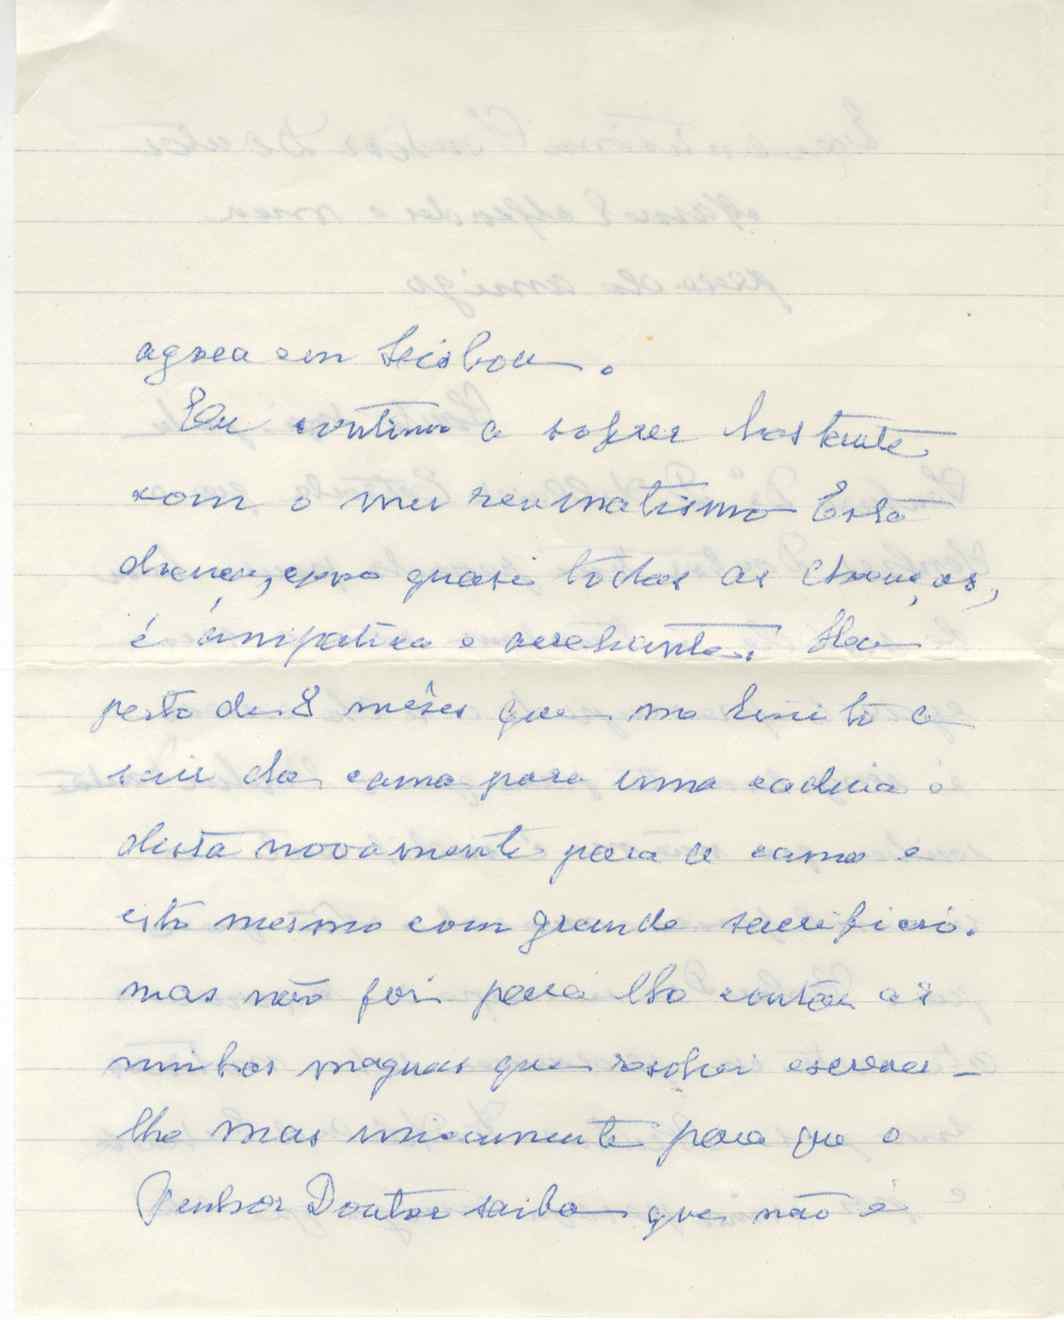 agora em Lisboa.
Eu continuo a sofrer bastante
com o meu reumatismo Esta
doença, como quasi todas as doenças,
é antipatica e
perto de 8 mêses que me limito a
sair da cama para uma cadeira e
desta novamente para a cama e
isto mesmo com grande sacrificio.
mas não foi para lhe contar as
minhas maguas que resolvi escrever-
lhe mas unicamente para que o
Senhor Doutor saiba que não é